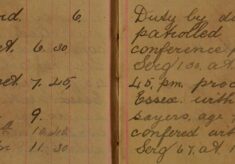 6.
6. 30
7. 45,
9.
11. 30
Duty by d
patrolled
conference p
Serg 130, at
45, p.m. pro
Essex. with
sayers, age
confered with
Serg 67, at 1